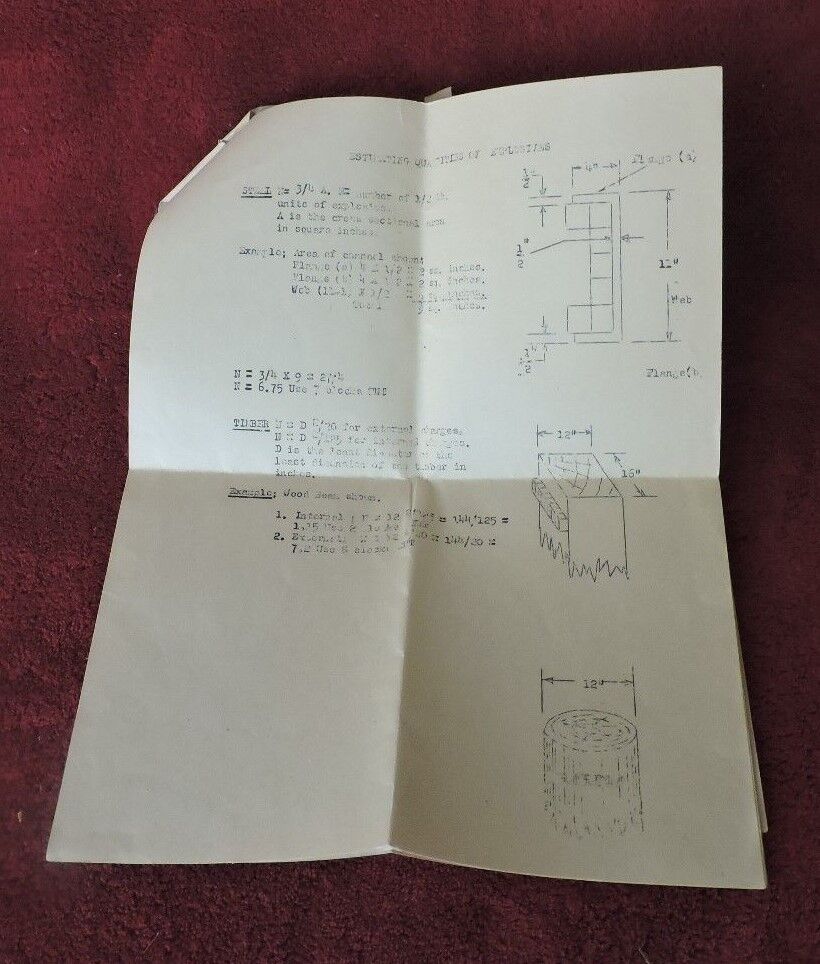 ESTIMATING QUANTITIES OF EXPLOSIVES
STEEL N= 3/4 A. N= number of 1/2 lb.
units of explosive.
A is the cross sectional area
in square inches.
Example; Area of channel shown:
Flange (a) 4 X 1/2 = 2 sq. inches.
Flange (b) 4 X 1/2 = 2 sq. inches.
Web (11-1) X 1/2 =
Total sq. inches.
N = 3/4 X 9 =
N = 6.75 Use 7 blocks TNT
TIMBER N = D /20 for external charges.
N = D /125 for internal charges.
D is the least diameter or the
least dimension of the timber in
inches.
Example; Wood Beam shown.
1. Internal; N = 12 = 144/125 =
1.15 Use 2 blocks
2. External; N = 12 = 144/20 =
7.2 Use 8 blocks
1"
2
4"
Flange (a)
1"
2
11"
Web
1"
2
Flange(b
12"
16"
12"